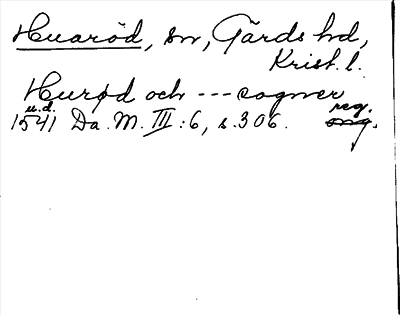 Huaröd, sn, Gärds hd,
Krist. l.
Hurød och --- sogner
u.d. reg.
1541 Da. M. III:6, s. 306. orig.